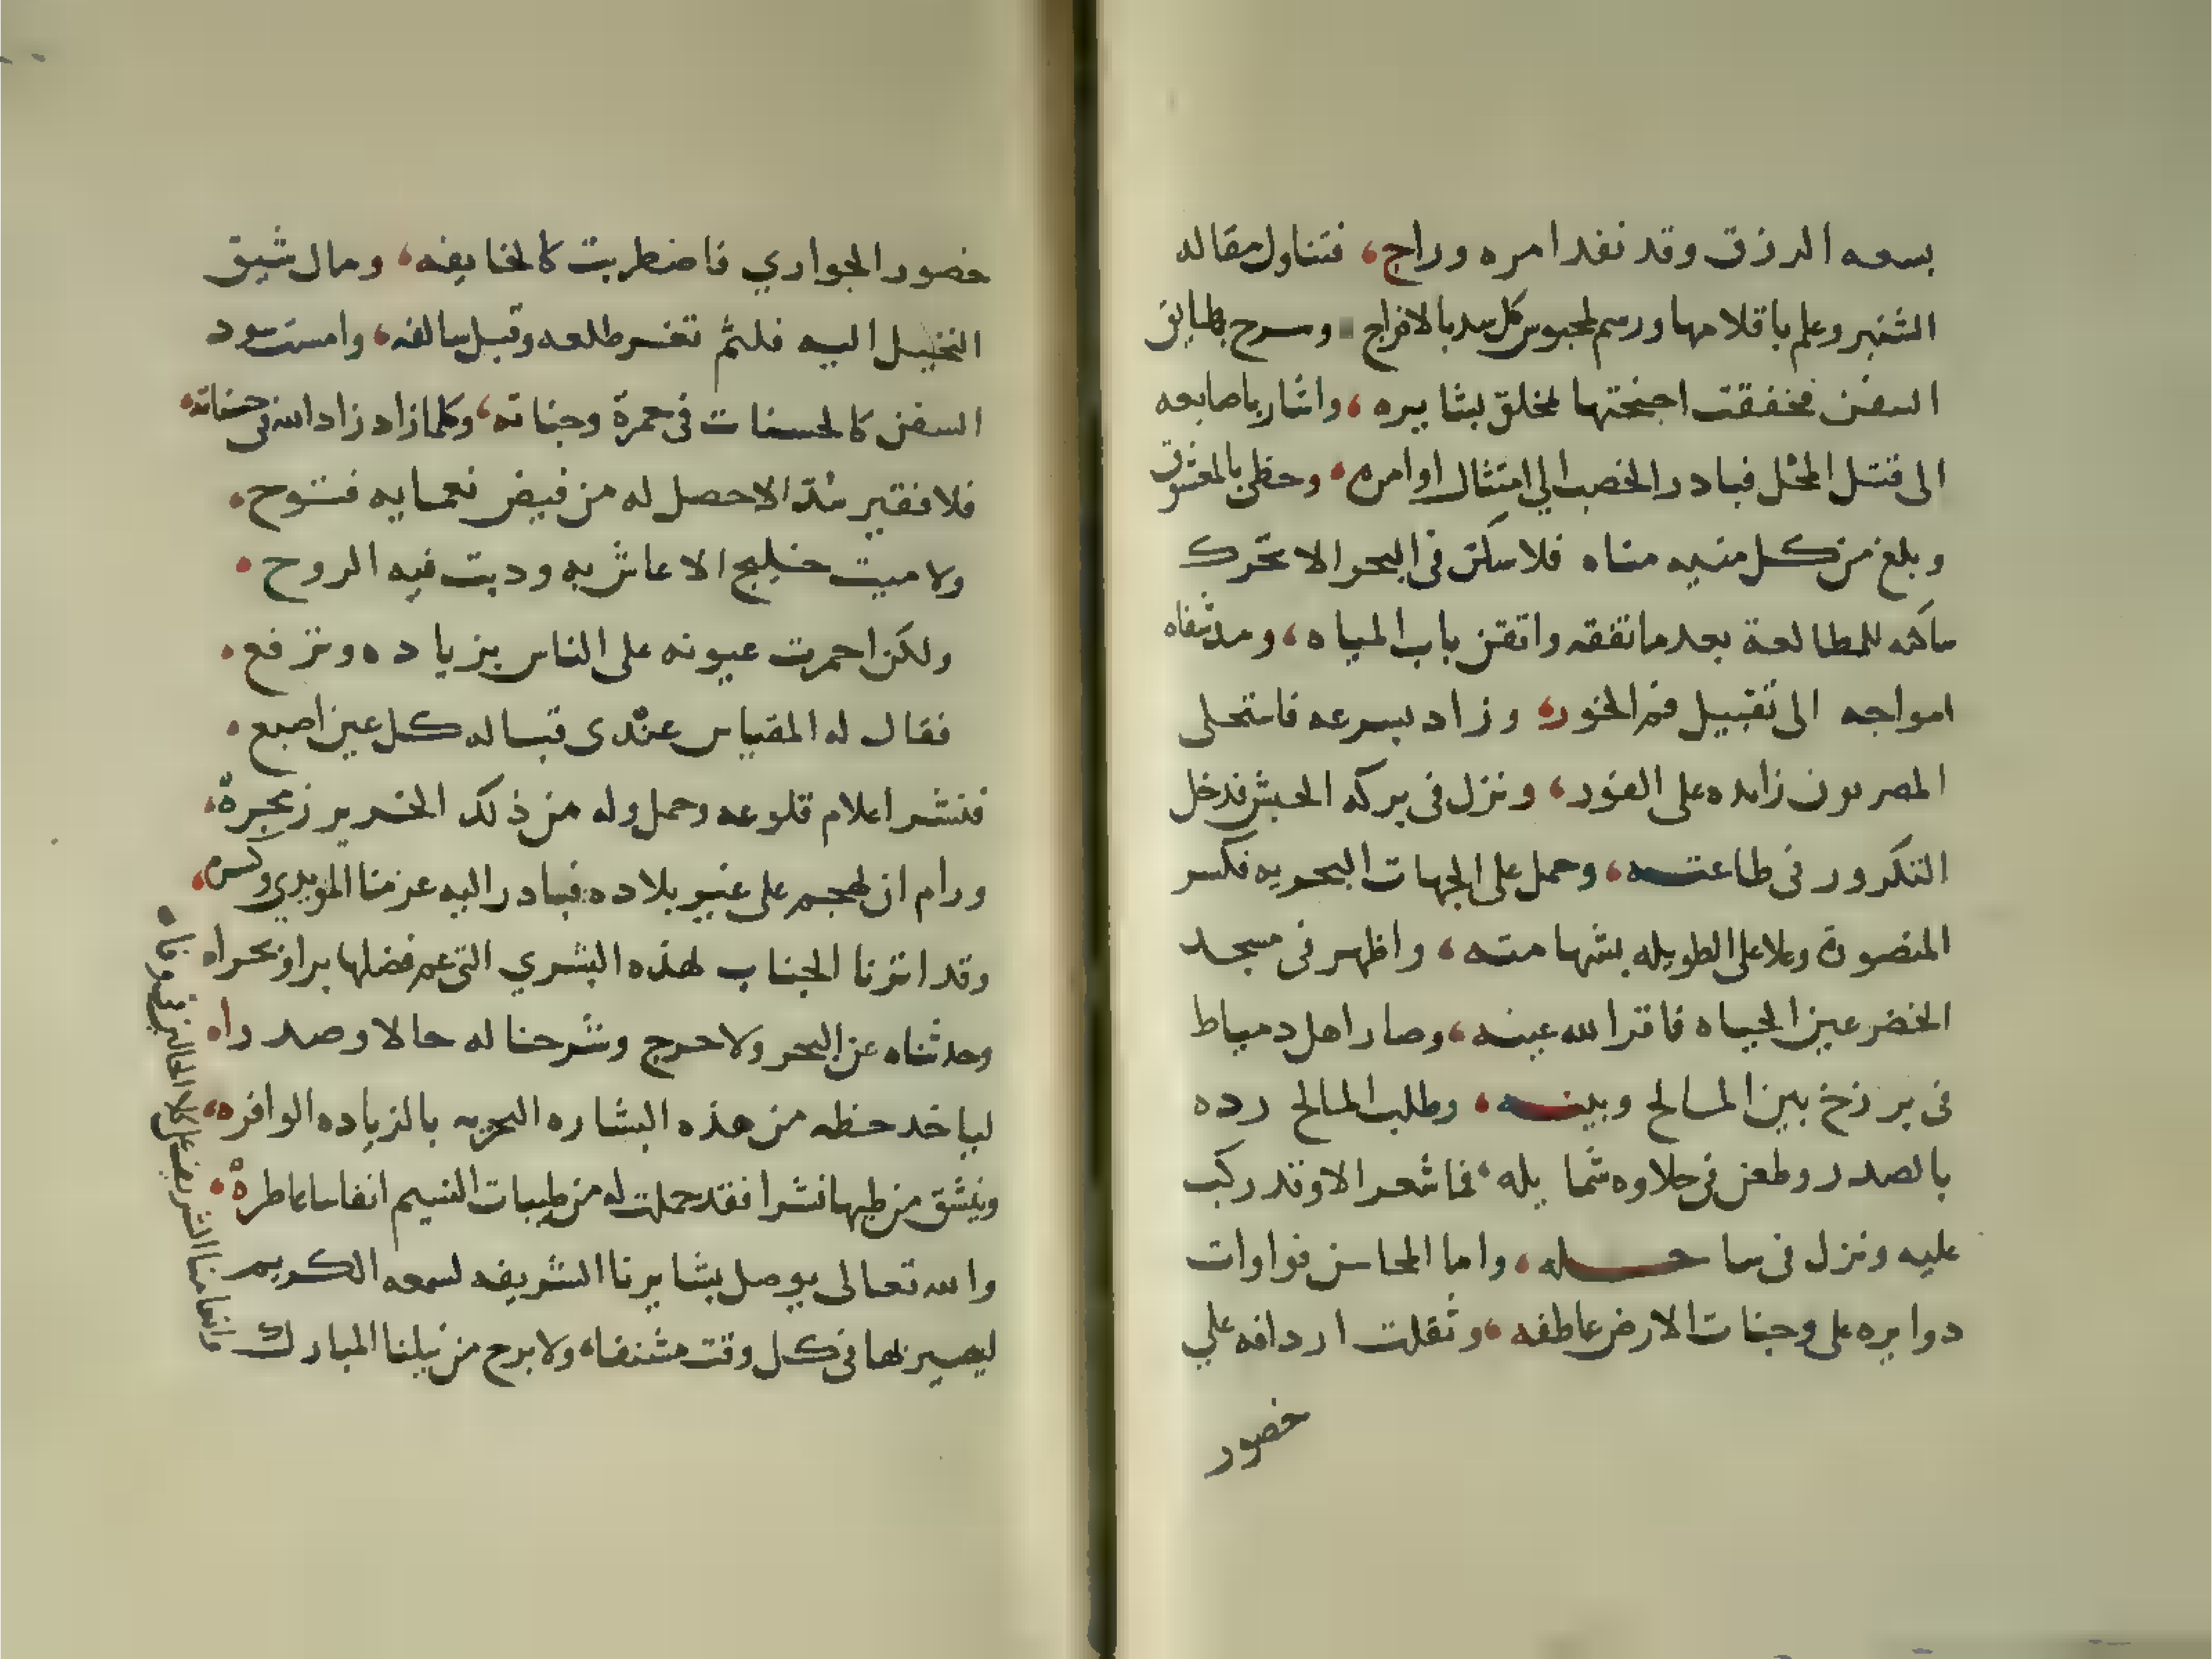 بسعه الرزق وقد نفد امره وراج، فتناول مقاله
الشنبر وعلم باقلامها ورسم لمحبوس كل سد بالافراج وسرح بطايق
السفن فخفقت اجنحتها لمخلق بشايره، واشار باصابعه
الى قتل المحل فبادر الخصب الي امتثال اوامره، وحظى بالمعشوق
وبلغ من كل منيه مناه فلا سكن فى البحر الا تحرك
ساكنه للمطالعة بعد ما تفقه واتقن باب المياه، ومد شفاه
امواجه الى تقبيل فم الخور، وزاد بسرعه فاستحلى
المصريون زايده على الفور، ونزل فى بركه الحبش فدخل
التكرور فى طاعته، وحمل على الجهات البحريه فكسر
المنصورة وعلا على الطويله بشهامته، واظهر فى مسجد
الخضر عين الحياه فاقر الله عينه، وصار اهل دمياط
فى برزخ بين المالح وبينه، وطلب المالح رده
بالصدر وطعن فى حلاوه شمايله، فما شعر الا وقد ركب
عليه ونزل فى ساحله، واما المحاسن فواوات
دوايره على وجنات الارض عاطفه، وثقلت اردافه علي
خصور
خصور الجواري فاضطربت كالخايفه، ومال شيق
النخيل اليه فلثم ثغر طلعه وقبل سالفه، وامست سود
السفن كالحسنات فى حمرة وجناته، وكلما زاد زاد الله فى حسناته،
فلا فقير سد الا حصل له من فيض نعمايه فتوح
ولا ميت خليج الا عاش به ودبت فيه الروح
ولكن احمرت عيونه على الناس بزياده وترفع
فقال له المقياس عندى قباله كل عين اصبع
فنشر اعلام قلوعه وحمل وله من ذلك الخرير زمجرة،
ورام ان يهجم على غير بلاده فبادر اليه عزمنا المويدي وكسره،
وقد اثرنا الجناب بهذه البشري التى عم فضلها برا وبحراه
وحدثناه عن البحر ولا حرج وشرحنا له حالا وصدراه
لياخد حظه من هذه البشاره البحريه بالزياده الوافره،
وينشق من طيها نشرا فقد حملت له من طيبات النسيم انفاسا عاطرة
والله تعالى يوصل بشايرنا الشريفه لسمعه الكريم
ليصير بها فى كل وقت مشنفا، ولا برح من نيلنا المبارك
وانعامنا الشريف على كلا الحالين فى وفاه